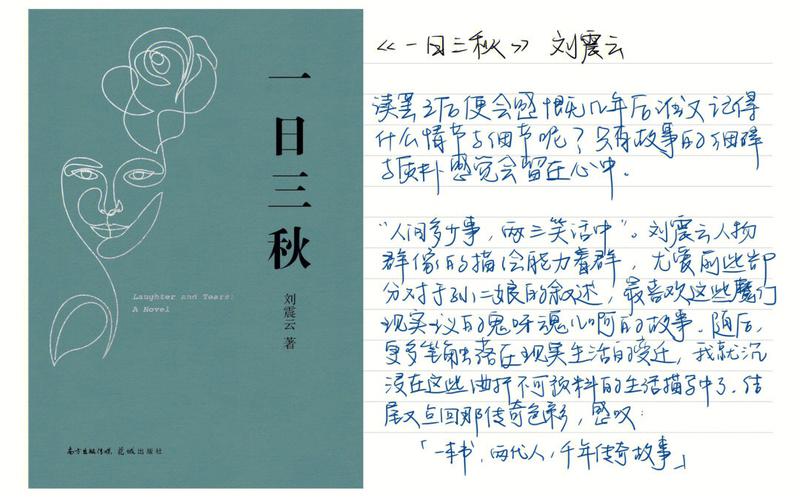 一日三秋
Laughter and Tears:
A Novel
刘震云 著
南方出版传媒 花城出版社
《一日三秋》 刘震云
读罢之后便会感慨几年后谁又记得
什么情节与细节呢？只有故事的细碎
与质朴感觉会留在心中.
"人间多少事，两三笑话中"。刘震云人物
群像的描绘能力着群，尤爱前些部
分对于孙二娘的叙述，最喜欢这些魔幻
现实主义的鬼呀魂儿啊的故事.随后，
更多笔触落在现实生活的变迁，我就沉
浸在这些曲折不可预料的生活描写中了.结
尾又点回那传奇色彩，感叹:
「一本书，两代人，千年传奇故事」